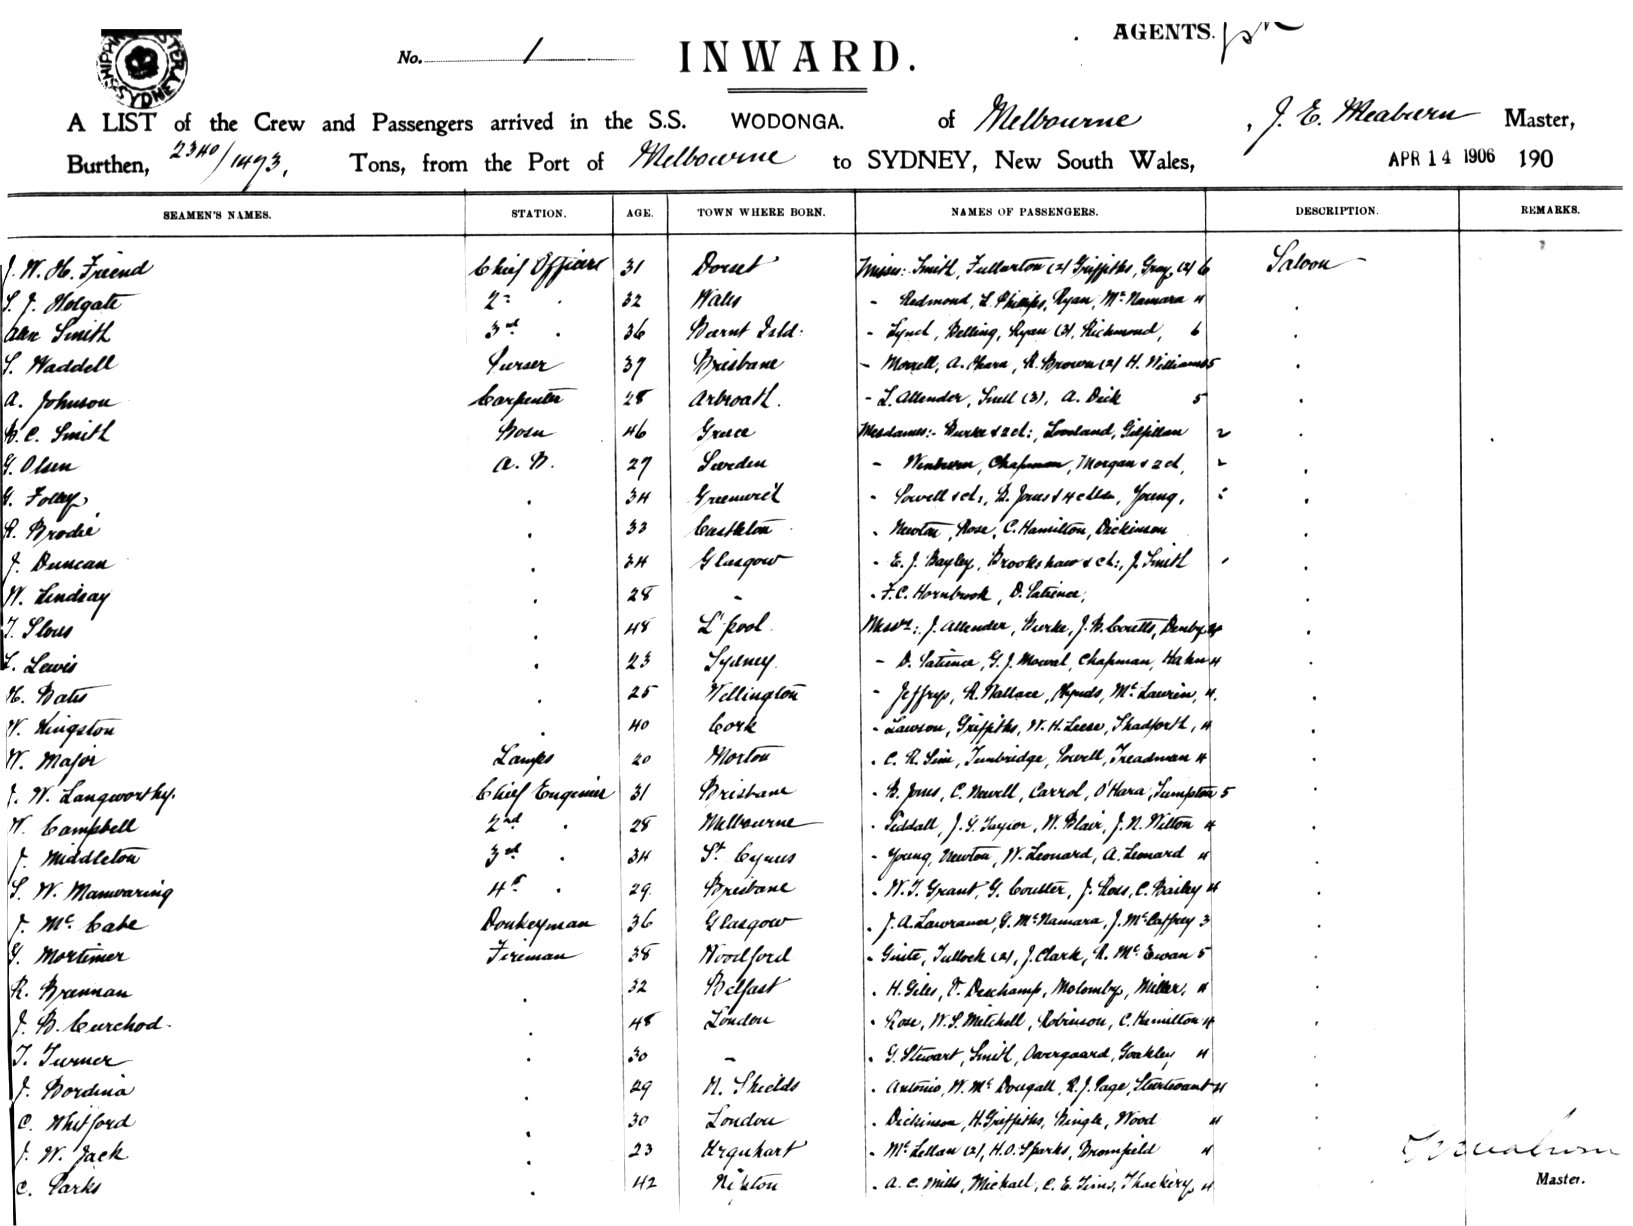 AGENTS.
No. 1 INWARD.
A LIST of the Crew and Passengers arrived in the S.S. WODONGA. of Melbourne, J. E. Meaburn Master,
Burthen, 2340/1473, Tons, from the Port of Melbourne to SYDNEY, New South Wales, APR 14 1906 190
SEAMEN'S NAMES. STATION. AGE. TOWN WHERE BORN. NAMES OF PASSENGERS. DESCRIPTION. REMARKS.
J. W. H. Friend Chief Officer 31 Dorset Misses: Smith, Fullarton (2) Griffiths, Gray, (2) 6 Saloon
S. J. Holgate 2nd 32 Wales Redmond, L. Phillips, Ryan, McNamara 4
Alex Smith 3rd 36 Burnt Isld: Lynch, Belling, Ryan (3), Richmond, 6
S. Waddell Purser 37 Brisbane Morrell, A. Ohara, R. Brown (2) H. Williams 5
A. Johnson Carpenter 28 Arbroath. L. Allender, Snell (3), A. Dick 5
B. C. Smith Bosn 46 Greece Mesdames:- Burke & 2 ch:, Loveland, Gilfillan 2
G. Olsen A. B. 27 Sweden Winburn, Chapman, Morgan & 2 ch, 2
G. Folley 34 Greenwich Powell & ch, B. Jones & 4 chldn, Young,
R. Brodie 33 Castleton Newton, Rose, C. Hamilton, Dickinson
J. Duncan 34 Glasgow E. J. Bayley, Brookshaw & ch:, J. Smith
W. Lindsay 28 " F. C. Hornbrook, D. Patience,
T. Slous 48 L'pool Messrs: J. Allender, Burke, J. B. Coutts, Denby 4
L. Lewis 23 Sydney D. Patience, G. J. Mowat, Chapman, Hahn 4
H. Bates 25 Wellington Jeffrys, R. Wallace, Hynds, McLaurin, 4
W. Kingston 40 Cork Lawson, Griffiths, W. H. Leese, Shadforth, 4
W. Major Lamps 20 Morton C. R. Sim, Tunbridge, Powell, Treadman 4
J. W. Langworthy. Chief Engineer 31 Brisbane B. Jones, C. Newell, Carrol, O'Hara, Tumpton 5
W. Campbell 2nd 28 Melbourne Siddall, J. G. Taylor, W. Blair, J. N. Wilton 4
J. Middleton 3rd 34 St Cyrus Young, Newton, W. Leonard, A. Leonard 4
S. W. Manwaring 4th 29 Brisbane W. T. Grant, G. Coulter, J. Ross, C. Bailey 4
J. McCabe Donkeyman 36 Glasgow J. A. Lawrance, G. McNamara, J. McCaffrey 3
G. Mortimer Fireman 38 Woodford Guite, Tullock (2), J. Clark, R. McEwan 5
R. Brennan 32 Belfast H. Giles, V. Deschamp, Molomby, Miller, 4
J. B. Curchod 48 London Rose, W. S. Mitchell, Robinson, C. Hamilton 4
T. Turner 30 " G. Stewart, Smith, Overgaard, Goakley 4
J. Bordina 29 N. Shields Antonio, W. McDougall, R. J. Page, Sturtevant 4
C. Whitford 30 London Dickinson, H. Griffiths, Bingle, Wood 4
J. W. Jack 23 Urquhart McLellan (2), H. O. Sparks, Bromfield 4
C. Parks 42 A. C. Mills, Michael, C. E. Tims, Thackery, 4
Master.